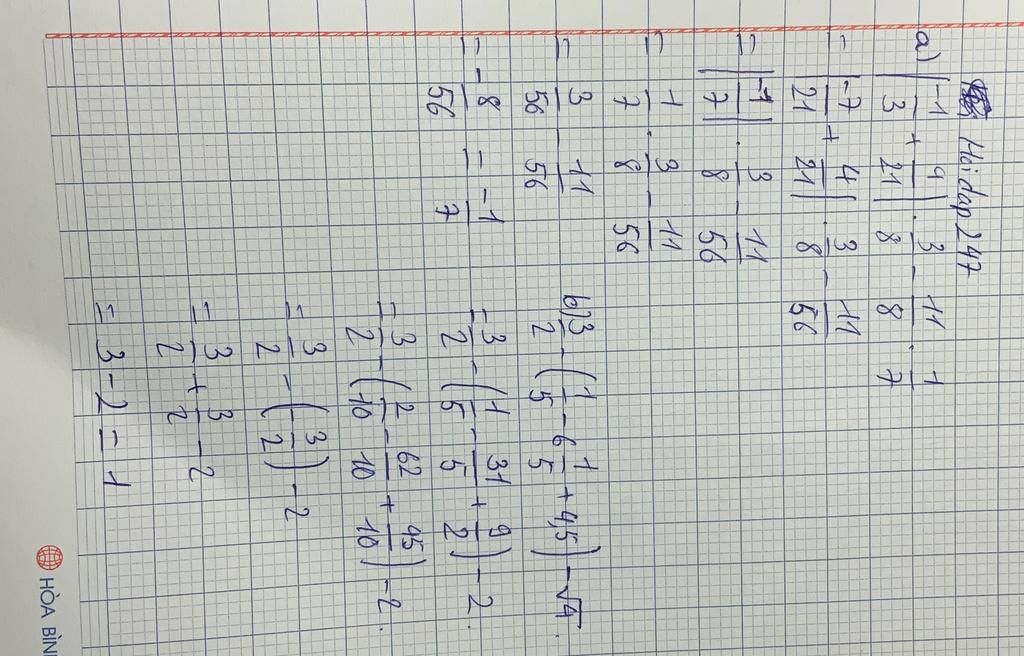 Hỏi đáp 247
a) |-1/3 + 4/21| . 3/8 - 11/8 . 1/7
= |-7/21 + 4/21| . 3/8 - 11/56
= |-1/7| . 3/8 - 11/56
= 1/7 . 3/8 - 11/56
= 3/56 - 11/56
= -8/56 = -1/7
b) 3/2 - (1/5 - 6 1/5 + 4,5) - √4.
= 3/2 - (1/5 - 31/5 + 9/2) - 2.
= 3/2 - (2/10 - 62/10 + 45/10) - 2.
= 3/2 - (3/2) - 2
= 3/2 + 3/2 - 2
= 3 - 2 = 1
HÒA BÌN